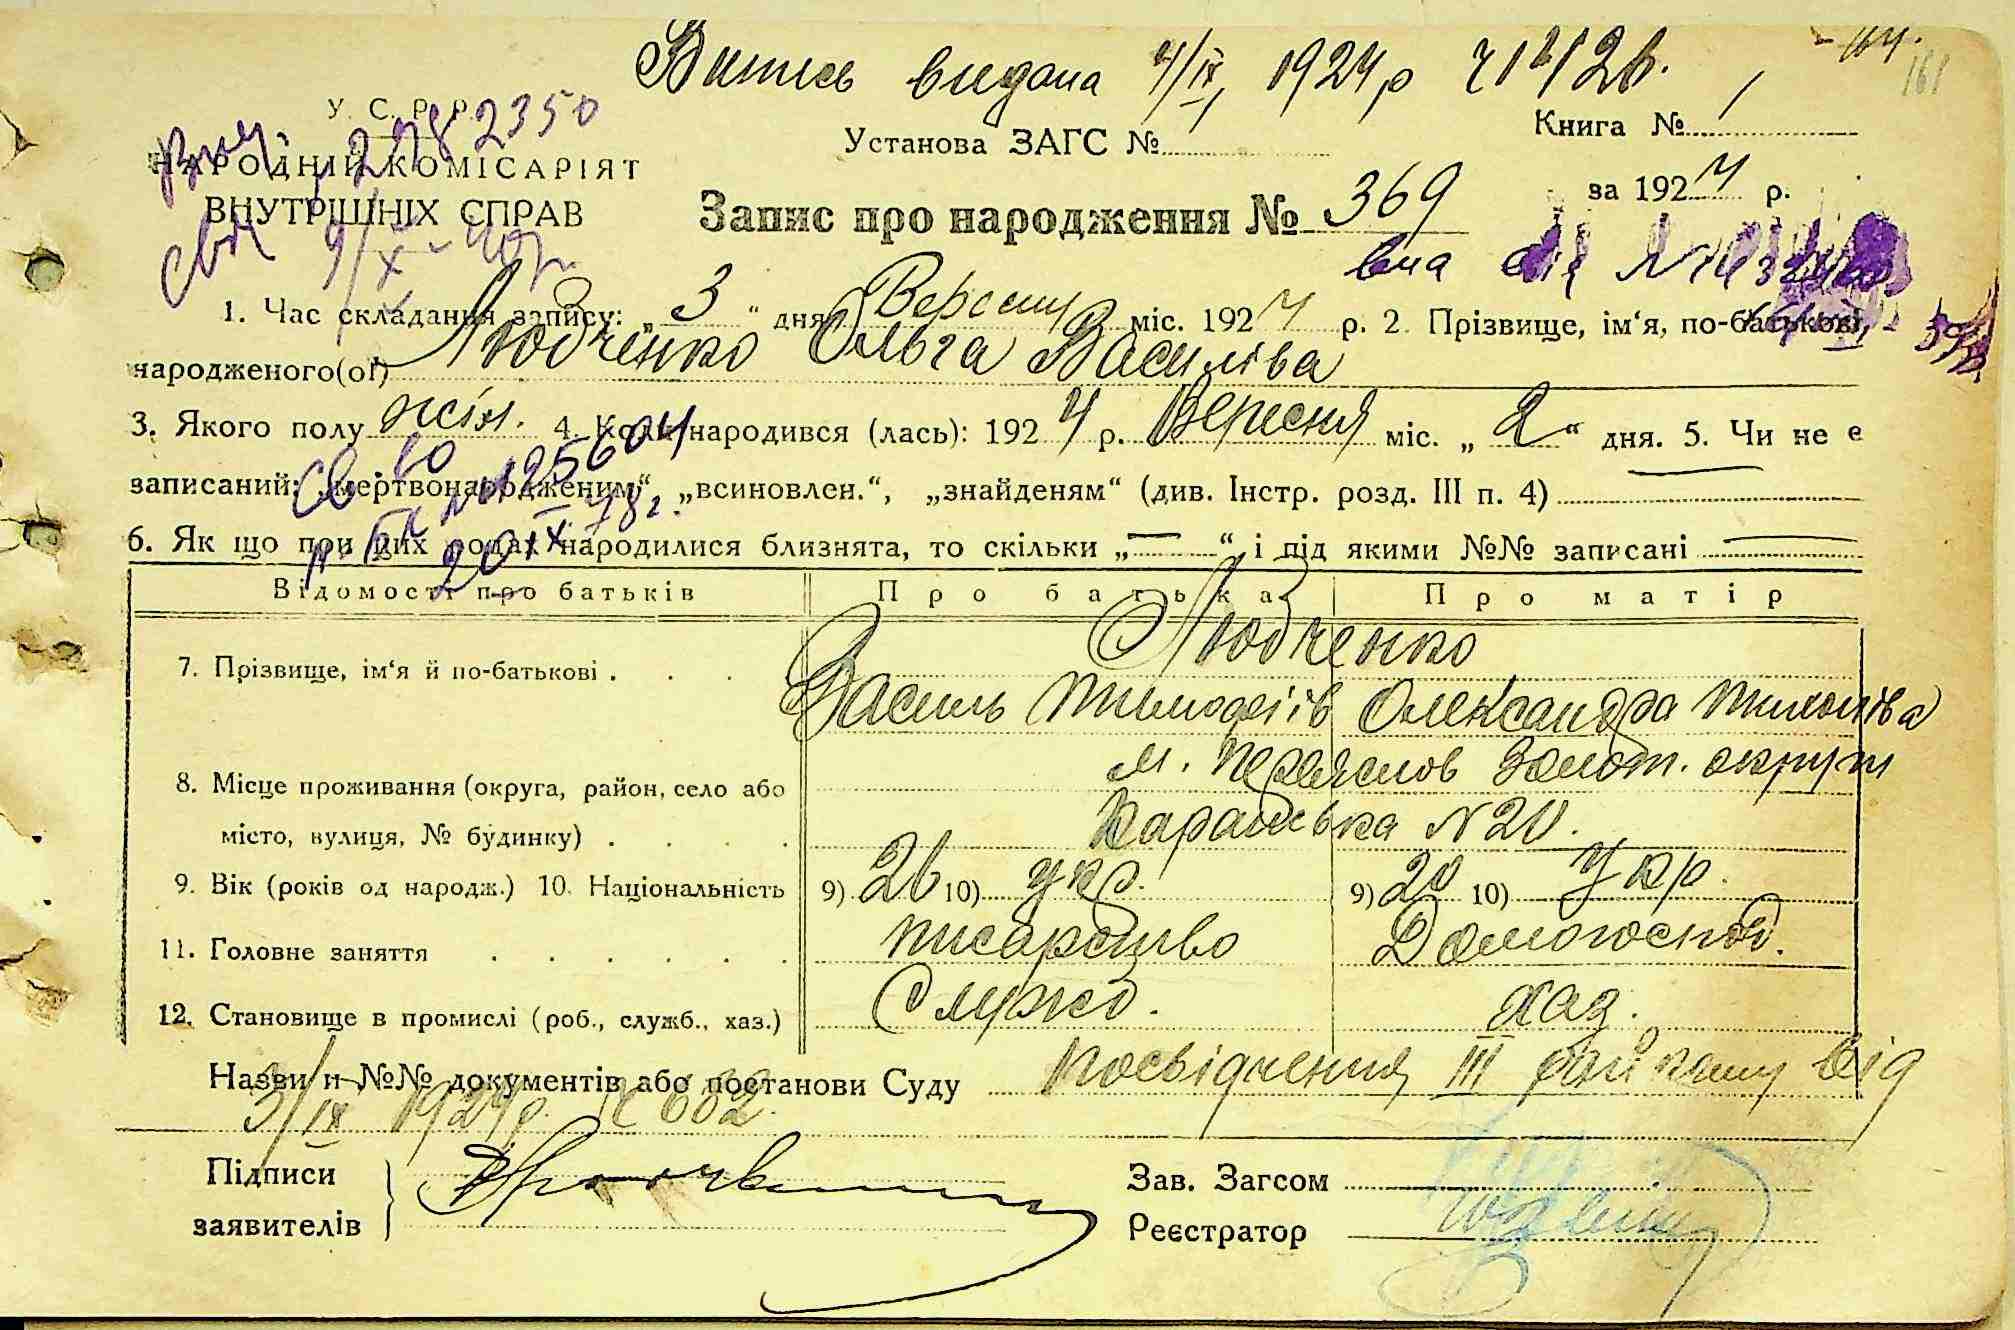 Витись видана 4/IX 1924 р
161
У. С. Р. Р.
2350
Установа ЗАГС №
Книга № 1
НАРОДНІЙ КОМІСАРІЯТ
за 1924 р.
ВНУТРІШНІХ СПРАВ
Запис про народження № 369
1. Час складання запису: „3“ дня Вересня міс. 1924 р. 2. Прізвище, ім‘я, по-батькові,
народженого(ої) Людченко Ольга Василіва
3. Якого полу жін. 4. Коли народився (лась): 1924 р. Вересня міс. „2“ дня. 5. Чи не є
записаний: „мертвонародженим“, „всиновлен.“, „знайденям“ (див. Інстр. розд. III п. 4)
Св во
№ 125604
20 IX 78 г.
6. Як що при цих родах народилися близнята, то скільки „—“ і під якими №№ записані —
Відомості про батьків Про батька Про матір
7. Прізвище, ім‘я й по-батькові . . . Людченко
Василь Тимофіїв Олександра
8. Місце проживання (округа, район, село або
місто, вулиця, № будинку) . . . .
м. Переяслов Золот. округи
№ 20.
9. Вік (років од народж.) 10. Національність 9) 26 10) укр. 9) 20 10) Укр.
11. Головне заняття . . . . . . писарство Домогоспод.
12. Становище в промислі (роб., служб., хаз.) Служб. хаз.
Назви и №№ документів або постанови Суду Посвідчення III від
3/IX 1924 р. № 632.
Підписи
заявителів
Зав. Загсом
Реєстратор